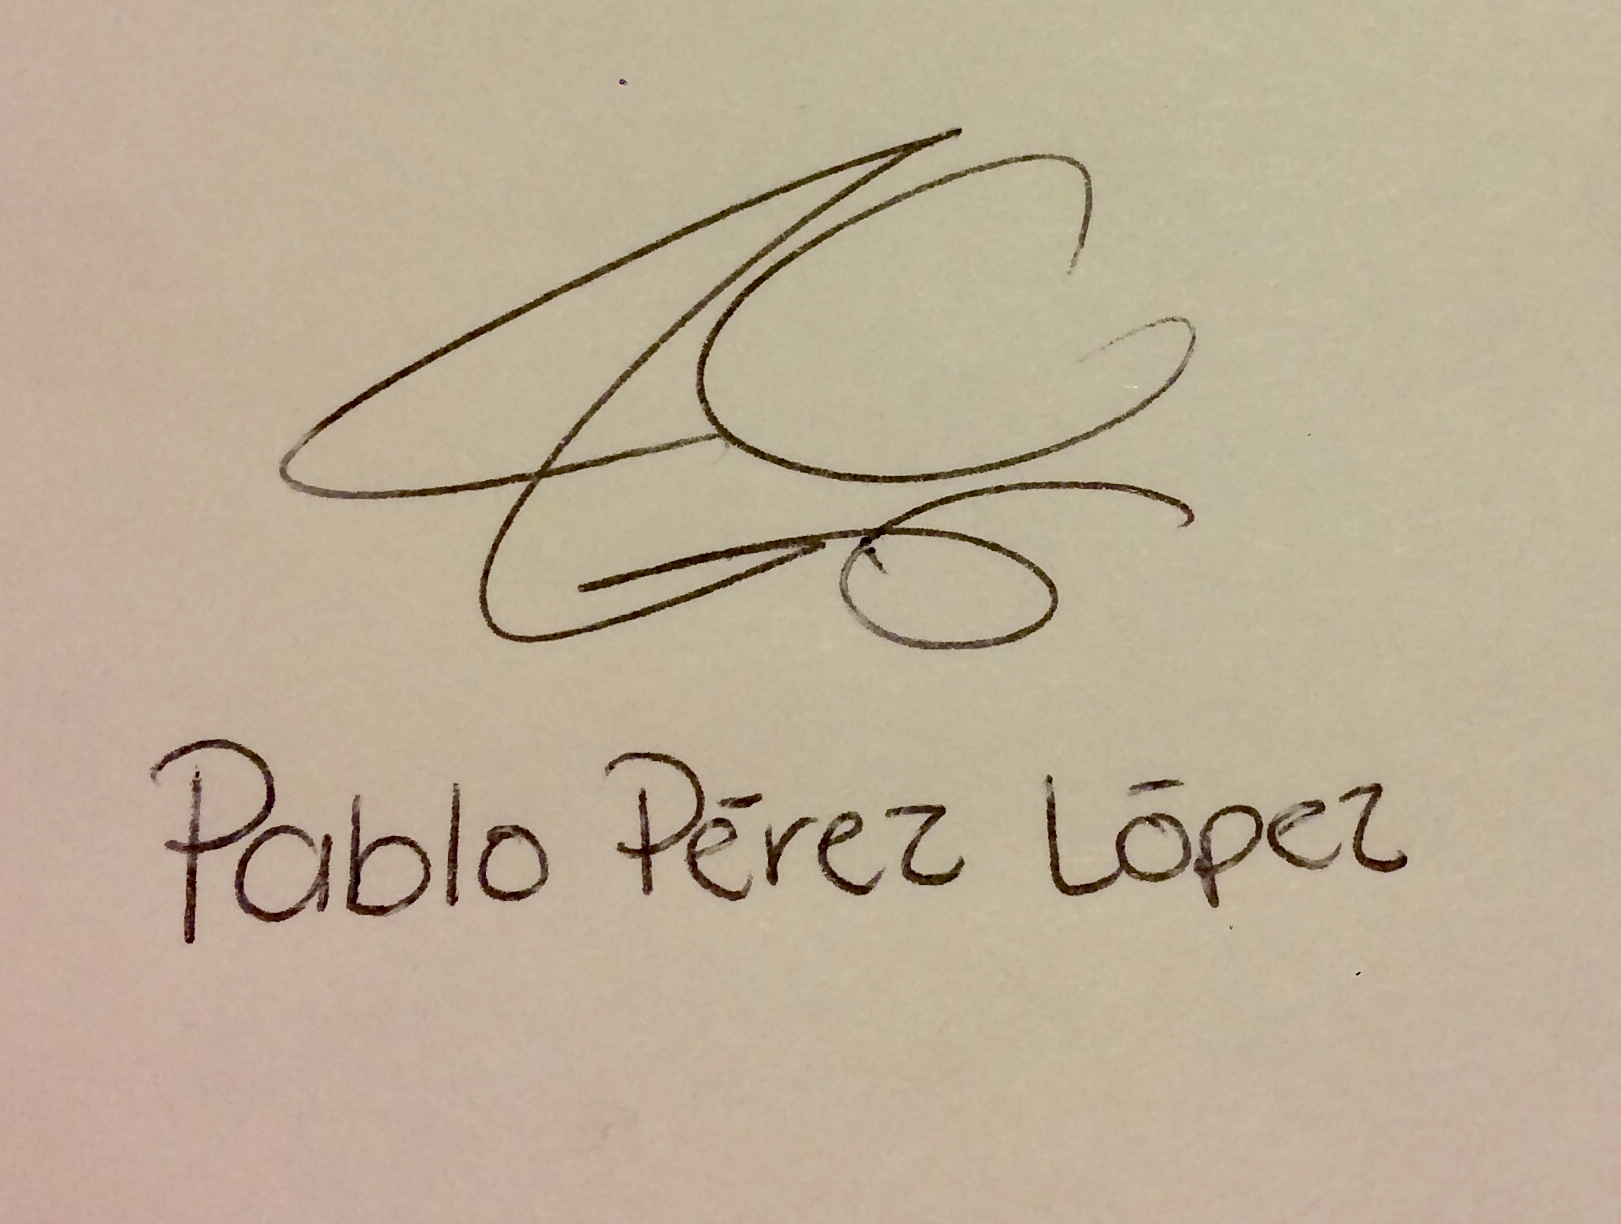 Pablo Pérez López